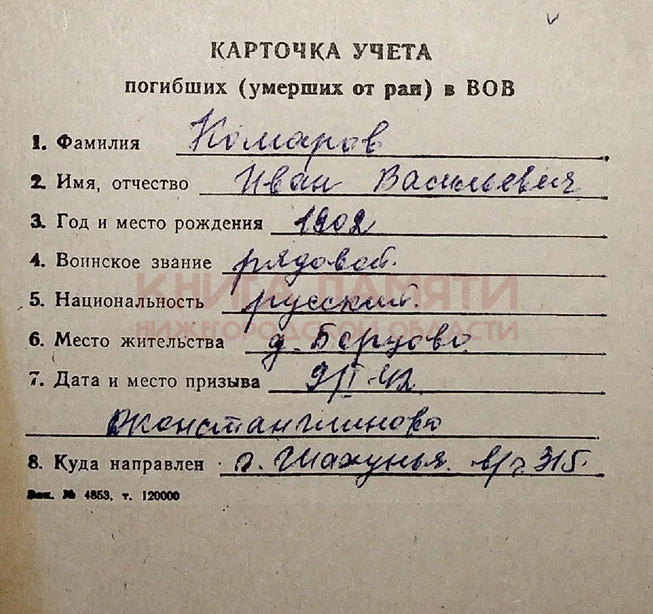 КАРТОЧКА УЧЕТА
погибших (умерших от ран) в ВОВ
1. Фамилия Комаров
2. Имя, отчество Иван Васильевич
3. Год и место рождения 1902
4. Воинское звание рядовой.
КНИГА ПАМЯТИ
5. Национальность русский.
НИЖЕГОРОДСКОЙ ОБЛАСТИ
6. Место жительства д. Борцово
7. Дата и место призыва 9/I-42
8. Куда направлен г. Шахунья. в/ч. 315.
Зак. № 4853, т. 120000